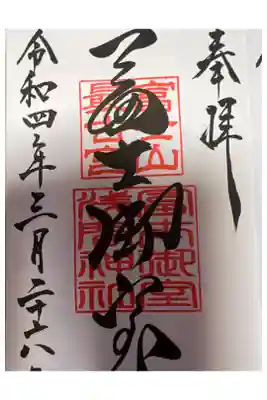 奉拝
冨士御室
富士山
最古宮
冨士御室
浅間神社
令和四年三月二十六日